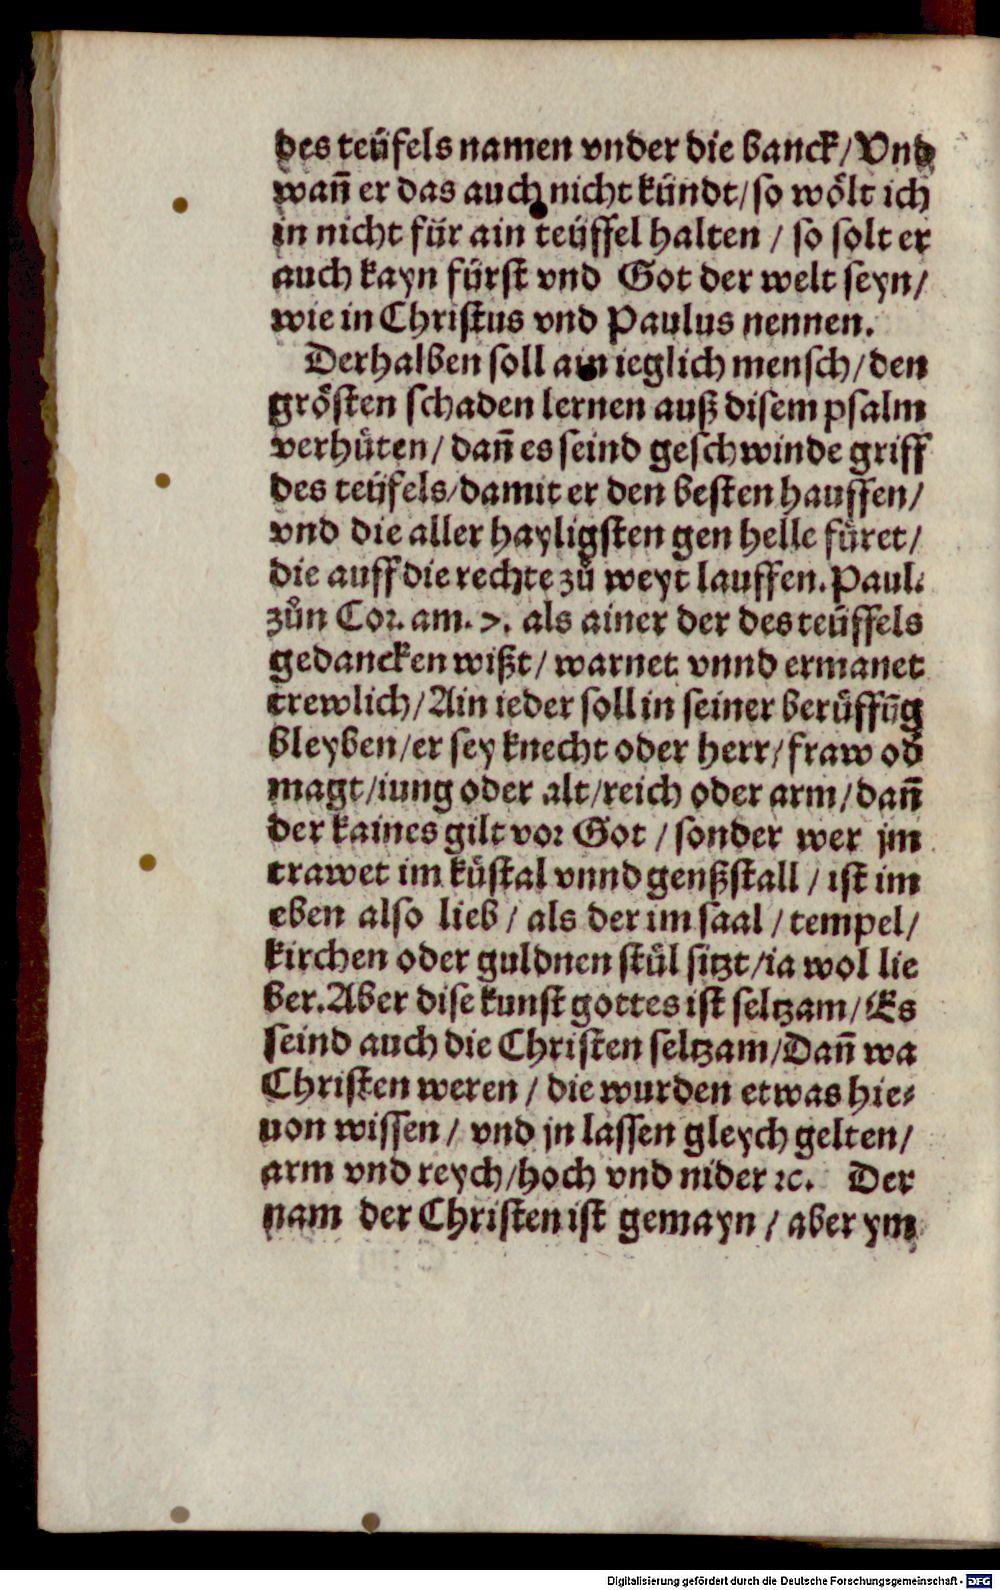 des teüfels namen vnder die banck/Vnd
wañ er das auch nicht kündt/so wölt ich
in nicht für ain teüffel halten / so solt er
auch kayn fürst vnd Got der welt seyn/
wie in Christus vnd Paulus nennen.
Derhalben soll ain ieglich mensch/den
grösten schaden lernen auß disem psalm
verhüten/ dañ es seind geschwinde griff
des teüfels/damit er den besten hauffen/
vnd die aller hayligsten gen helle füret/
die auff die rechte zů weyt lauffen. Paul.
zůn Cor. am. 7. als ainer der des teüffels
gedancken wißt/ warnet vnnd ermanet
trewlich/Ain ieder soll in seiner berůffũg
bleyben/er sey knecht oder herr/fraw od
magt/iung oder alt/reich oder arm/dañ
der kaines gilt vor Got / sonder wer jm
trawet im küstal vnnd genßstall / ist im
eben also lieb / als der im saal / tempel/
kirchen oder guldnen stůl sitzt/ia wol lie
ber. Aber dise kunst gottes ist seltzam/Es
seind auch die Christen seltzam/Dañ wa
Christen weren / die wurden etwas hie-
uon wissen/ vnd jn lassen gleych gelten/
arm vnd reych/hoch vnd nider ꝛc. Der
nam der Christen ist gemayn / aber ym
Digitalisierung gefördert durch die Deutsche Forschungsgemeinschaft - DFG